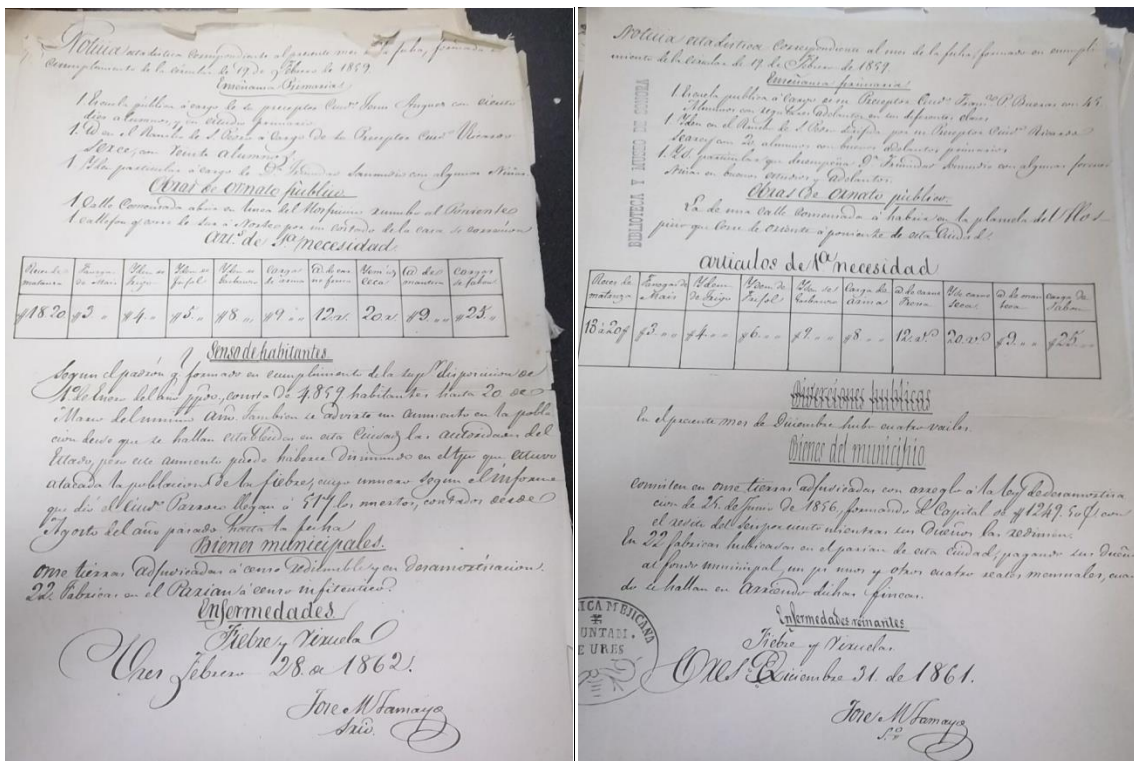 Noticia estadistica correspondiente al presente mes de la fecha, formada en
cumplimiento de la circular de 19 de Febrero de 1859.
Enseñanza Primaria
1 Escuela pública á cargo de su preceptor Ciud.º con ciento
diez alumnos
1. Id en el Rancho de S. á cargo de su Preceptor Ciud.º
con veinte alumnos
1 Iden particular á cargo de D.ª con algunas Niñas.
Obras de ornato público
1 Calle Comensada abrir en linea del rumbo al Poniente
1 callejon q.º corre de Sur á Norte por un costado de la casa de
art.s de 1.ª necesidad.
Reces de matanza
Fanega de Mais
Idem de Trigo
Idem de Frijol
Idem de Garbanzo
carga de arina
@ de carne fresca
Idem id. ceca
@ de manteca
cargas de jabon
$18 20
$3
$4
$5
$8
$9
12 r.
20 r.
$9
$25
Senso de habitantes
Segun el padron q.º formado en cumplimiento de la sup.r disposicion de
1.º de Enero del año ppdo, consta de 4.859 habitantes hasta 20 de
Marzo del mismo año. Tambien se advierte un aumento en la pobla
cion desde que se hallan establecidas en esta Ciudad las autoridades del
Estado, pero este aumento puede haberse disminuido en el tpo que estuvo
atacada la poblacion de la fiebre, cuyo numero segun el informe
que dió el Ciud.º Parroco llegan á 517 los muertos, contados desde
Agosto del año pasado hasta la fecha
Bienes municipales.
onse tierras adjudicadas á censo redimible y en desamortisacion.
22 Fabricas en el Parian á censo infiteutico.
Enfermedades
Fiebre y Viruela
Ures Febrero 28 de 1862.
Jose M Tamayo
Srio.
Noticia estadistica correspondiente al mes de la fecha, formada en cumpli
miento de la circular de 19 de Febrero de 1859.
Enseñanza primaria
1 Escuela publica á cargo de su Preceptor Ciud.º Fran.co P. con 45
Alumnos con regulares adelantos en sus diferentes clases
1 Iden en el Rancho de S. dirijida por su Preceptor Ciud.º
con 20 alumnos con buenos adelantos primarios
1. Id. particular que desempeña D.ª con algunas
Niñas en buenos estudios y adelantos.
Obras de ornato público.
La de una calle comensada á habrir en la plazuela del
que corre de oriente á poniente de esta Ciudad.
articulos de 1.ª necesidad
Reces de matanza
Fanegas de Mais
Idem de Trigo
Idem de Frijol
Idem de Garbanzo
Carga de arina
@ de carne fresca
Id de carne seca
@ de manteca
carga de Jabon
18 á 20 $
$3
$4
$6
$9
$8
12 r.s
20 r.s
$9
$25
Diverciones publicas
En el presente mes de Diciembre hubo cuatro vailes.
Bienes del municipio
consisten en onse tierras adjudicadas con arreglo á la ley de desamortisa
cion de 25 de Junio de 1856, formando el Capital de $1249.50 ¢ con
el redito del seis por ciento mientras sus Dueños las redimen.
En 22 fabricas hubicadas en el parian de esta ciudad; pagando sus dueños
al fondo municipal, un peso unos y otros cuatro reales mensuales, cuan
do se hallan en arriendo dichas fincas.
Enfermedades reinantes
Fiebre y Viruela.
Ures Diciembre 31 de 1861.
Jose M Tamayo
S.º
BIBLIOTECA Y MUSEO DE SONORA
ICA MEJICANA
UNTAM.
E URES